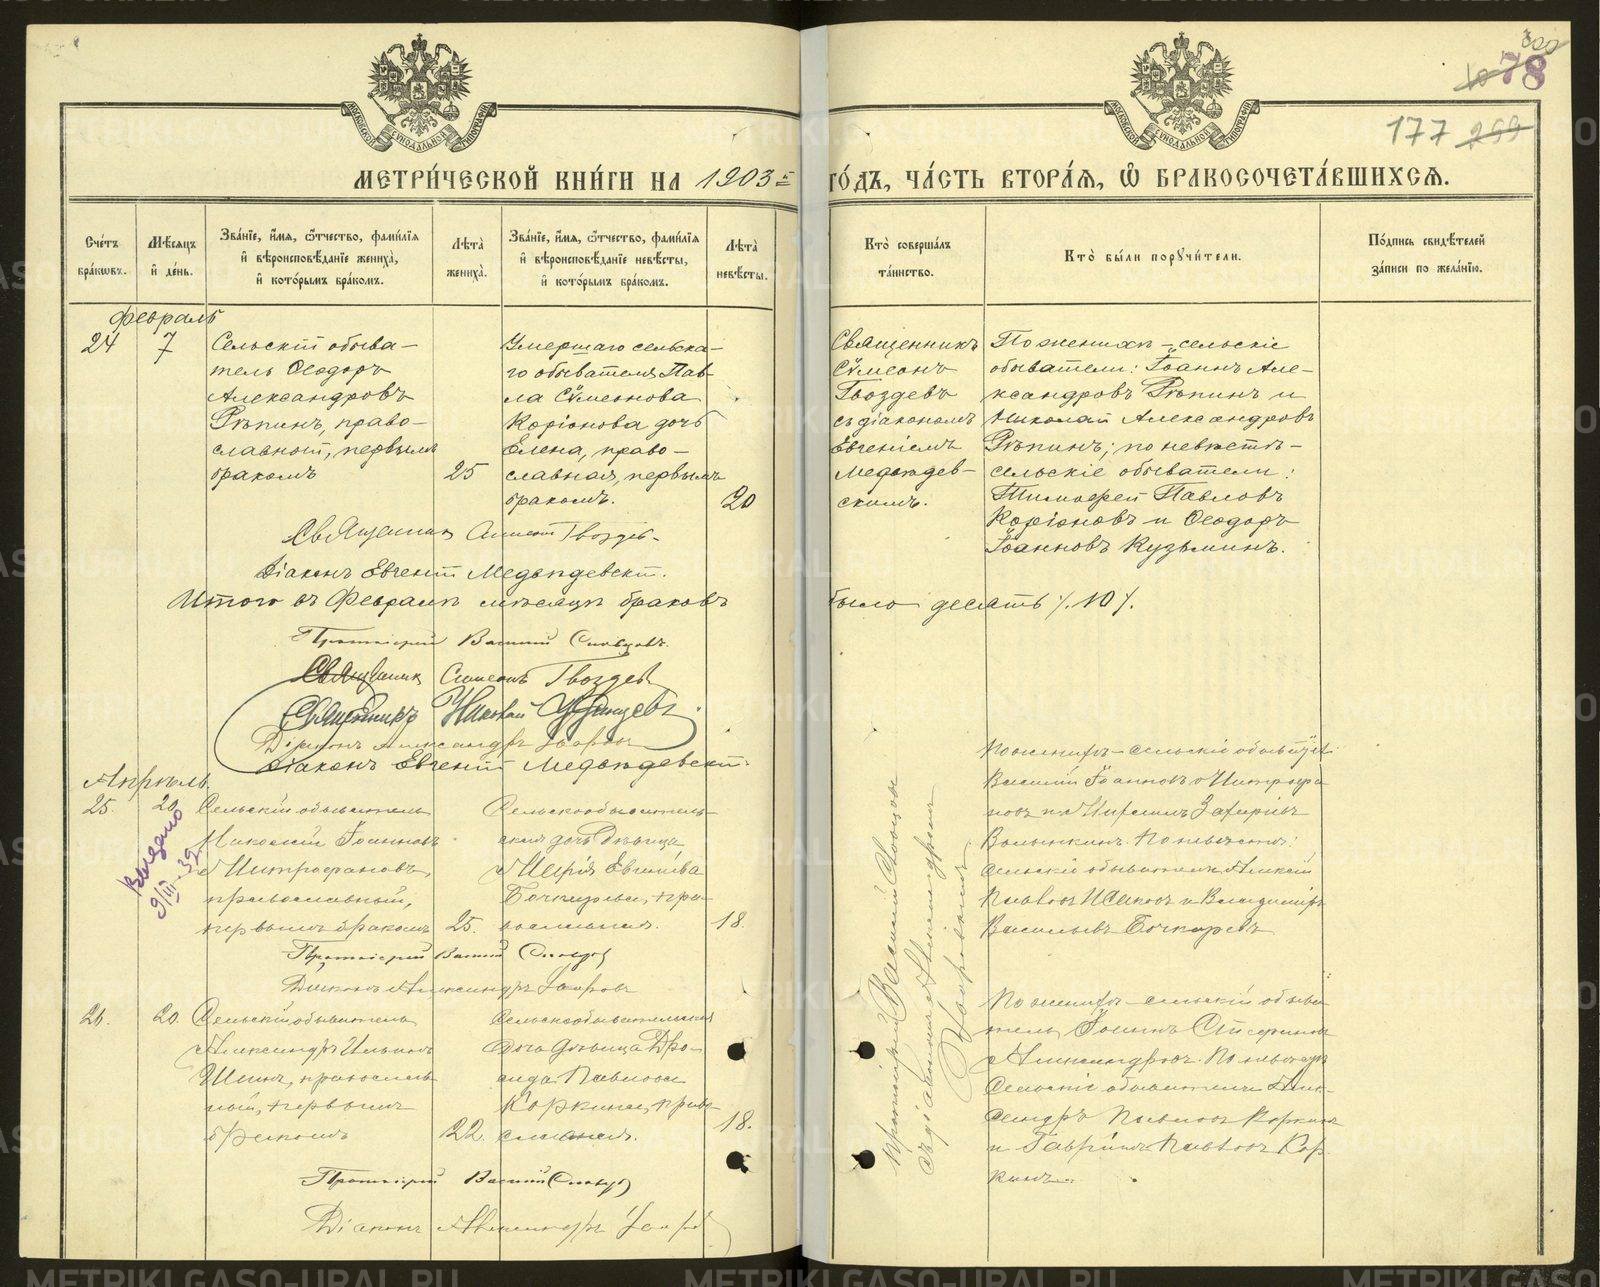 78
177
МЕТРИ́ЧЕСКОЙ КНИ́ГИ НА 1903 ГО́ДЪ, ЧА́СТЬ ВТОРА́Я, Ѡ БРАКОСОЧЕТА́ВШИХСЯ.
Сче́тъ бра́кѡвъ.
Мѣ́сяцъ и҆ де́нь.
Зва́нїе, и҆́мя, ѻ҆́тчество, фами́лїя и҆ вѣроисповѣ́данїе жениха̀, и҆ кото́рымъ бра́комъ.
Лѣта̀ жениха̀.
Зва́нїе, и҆́мя, ѻ҆́тчество, фами́лїя и҆ вѣроисповѣ́данїе невѣ́сты, и҆ кото́рымъ бра́комъ.
Лѣта̀ невѣ́сты.
Кто̀ соверша́лъ та́инство.
Кто̀ бы́ли порꙋчи́тели.
По́дпись свидѣ́телей за́писи по жела́нїю.
Февраль
24
7
Сельскій обыва-
тель Ѳеодоръ
Александровъ
Рѣпинъ, право-
славный, первымъ
бракомъ
25
Умершаго сельска-
го обывателя Пав-
ла Сѵмеонова
Коріонова дочь
Елена, право-
славная, первымъ
бракомъ.
20
Священникъ
Сѵмеонъ
Гвоздевъ
съ діакономъ
Евгеніемъ
Медвѣдев-
скимъ.
По женихѣ - сельскіе
обыватели: Іоаннъ Але-
ксандровъ Рѣпинъ и
Николай Александровъ
Рѣпинъ; по невѣстѣ -
сельскіе обыватели:
Тимофей Павловъ
Коріоновъ и Ѳеодоръ
Іоанновъ Кузьминъ.
Священникъ Симеонъ Гвоздевъ
Діаконъ Евгеній Медвѣдевскій.
Итого въ Февралѣ мѣсяцѣ браковъ было десять /. 10 /.
Протоіерей Василій Словцовъ.
Священникъ Симеонъ Гвоздевъ
Священникъ Николай
Діаконъ Александръ
Діаконъ Евгеній Медвѣдевскій
Апрѣль.
25.
20.
Выдано
9/III-32
Сельскій обыватель
Николай Іоанновъ
Митрофановъ,
православный,
первымъ бракомъ
25.
Сельскообыватель-
ская дочь дѣвица
Марія Евгеніева
Бочкарева, пра-
вославная.
18.
Протоіерей Василій Словцовъ
съ діакономъ Александромъ
По женихѣ - сельскіе обыват.
Василій Іоанновъ Митрофа
новъ и
Волынкинъ. По невѣстѣ:
сельскіе обыватели Алексій
Павловъ Исаковъ и Владиміръ
Васильевъ Бочкаревъ
Протоіерей Василій Словцовъ
Діаконъ Александръ
26.
20.
Сельскій обыватель
Александръ Ильинъ
Шеинъ, православ
ный, первымъ
бракомъ
22.
Сельскообывательская
дочь дѣвица Дро-
сида Павлова
Коркина, право
славная.
18.
По женихѣ - сельскій обыва
тель Іоаннъ
Александровъ. По невѣстѣ
сельскіе обыватели Алек-
сандръ Павловъ Коркинъ
и Гавріилъ Павловъ Кор
кинъ.
Протоіерей Василій Словцовъ
Діаконъ Александръ
METRIKI.GASO-URAL.RU